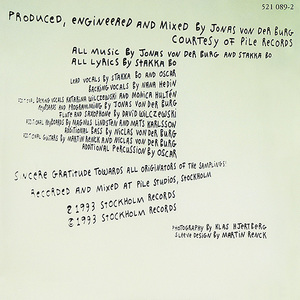 521 089-2
PRODUCED, ENGINEERED AND MIXED BY JONAS VON DER BURG
COURTESY OF PILE RECORDS
ALL MUSIC BY JONAS VON DER BURG AND STAKKA BO
ALL LYRICS BY STAKKA BO
LEAD VOCALS BY STAKKA BO AND OSCAR
BACKING VOCALS BY NANA HEDIN
VOCALS KATARINA WILCZEWSKI AND MONICA HULTÉN
AND PROGRAMMING BY JONAS VON DER BURG
FLUTE AND SAXOPHONE BY DAVID WILCZEWSKI
BY MAGNUS LINDSTEN AND MATS KARLSSON
ADDITIONAL BASS BY NICLAS VON DER BURG
GUITARS BY MARTIN RENCK AND NICLAS VON DER BURG
ADDITIONAL PERCUSSION BY OSCAR
SINCERE GRATITUDE TOWARDS ALL ORIGINATORS OF THE SAMPLINGS!
RECORDED AND MIXED AT PILE STUDIOS, STOCKHOLM
℗ 1993 STOCKHOLM RECORDS
© 1993 STOCKHOLM RECORDS
PHOTOGRAPHY BY KLAS HJERTBERG
SLEEVE DESIGN BY MARTIN RENCK